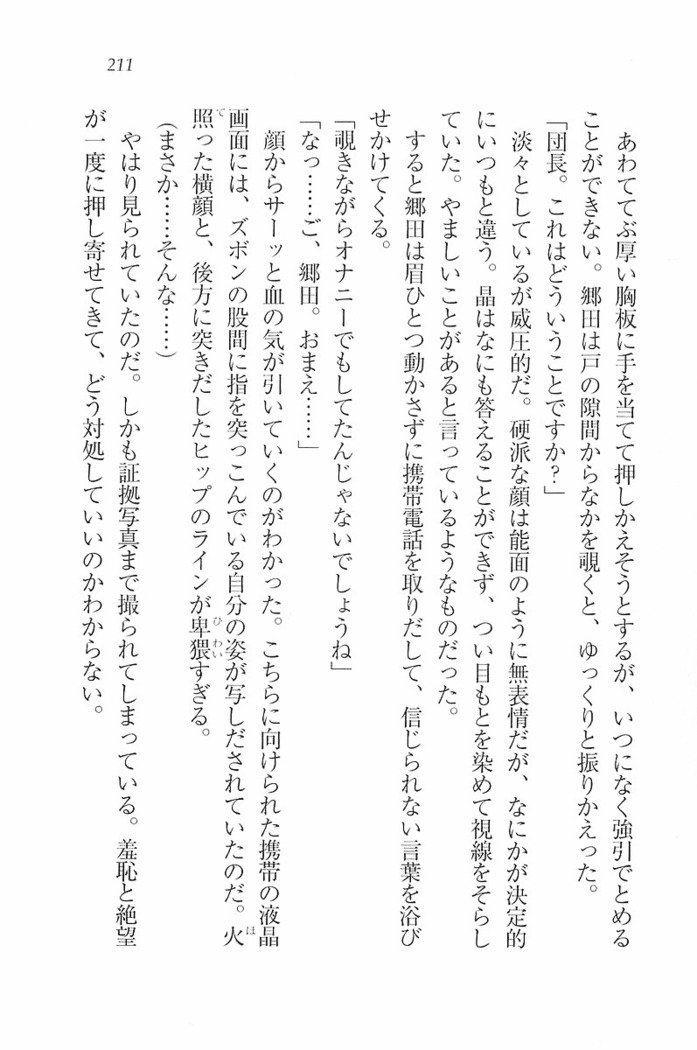 211
あわててぶ厚い胸板に手を当てて押しかえそうとするが、いつになく強引でとめる
ことができない。郷田は戸の隙間からなかを覗くと、ゆっくりと振りかえった。
「団長。これはどういうことですか?」
淡々としているが威圧的だ。硬派な顔は能面のように無表情だが、なにかが決定的
にいつもと違う。晶はなにも答えることができず、つい目もとを染めて視線をそらし
ていた。やましいことがあると言っているようなものだった。
すると郷田は眉ひとつ動かさずに携帯電話を取りだして、信じられない言葉を浴び
せかけてくる。
「覗きながらオナニーでもしてたんじゃないでしょうね」
「なっ……ご、郷田。おまえ……」
顔からサーッと血の気が引いていくのがわかった。こちらに向けられた携帯の液晶
画面には、ズボンの股間に指を突っこんでいる自分の姿が写しだされていたのだ。火
照った横顔と、後方に突きだしたヒップのラインが卑猥すぎる。
(まさか……そんな……)
やはり見られていたのだ。しかも証拠写真まで撮られてしまっている。羞恥と絶望
が一度に押し寄せてきて、どう対処していいのかわからない。